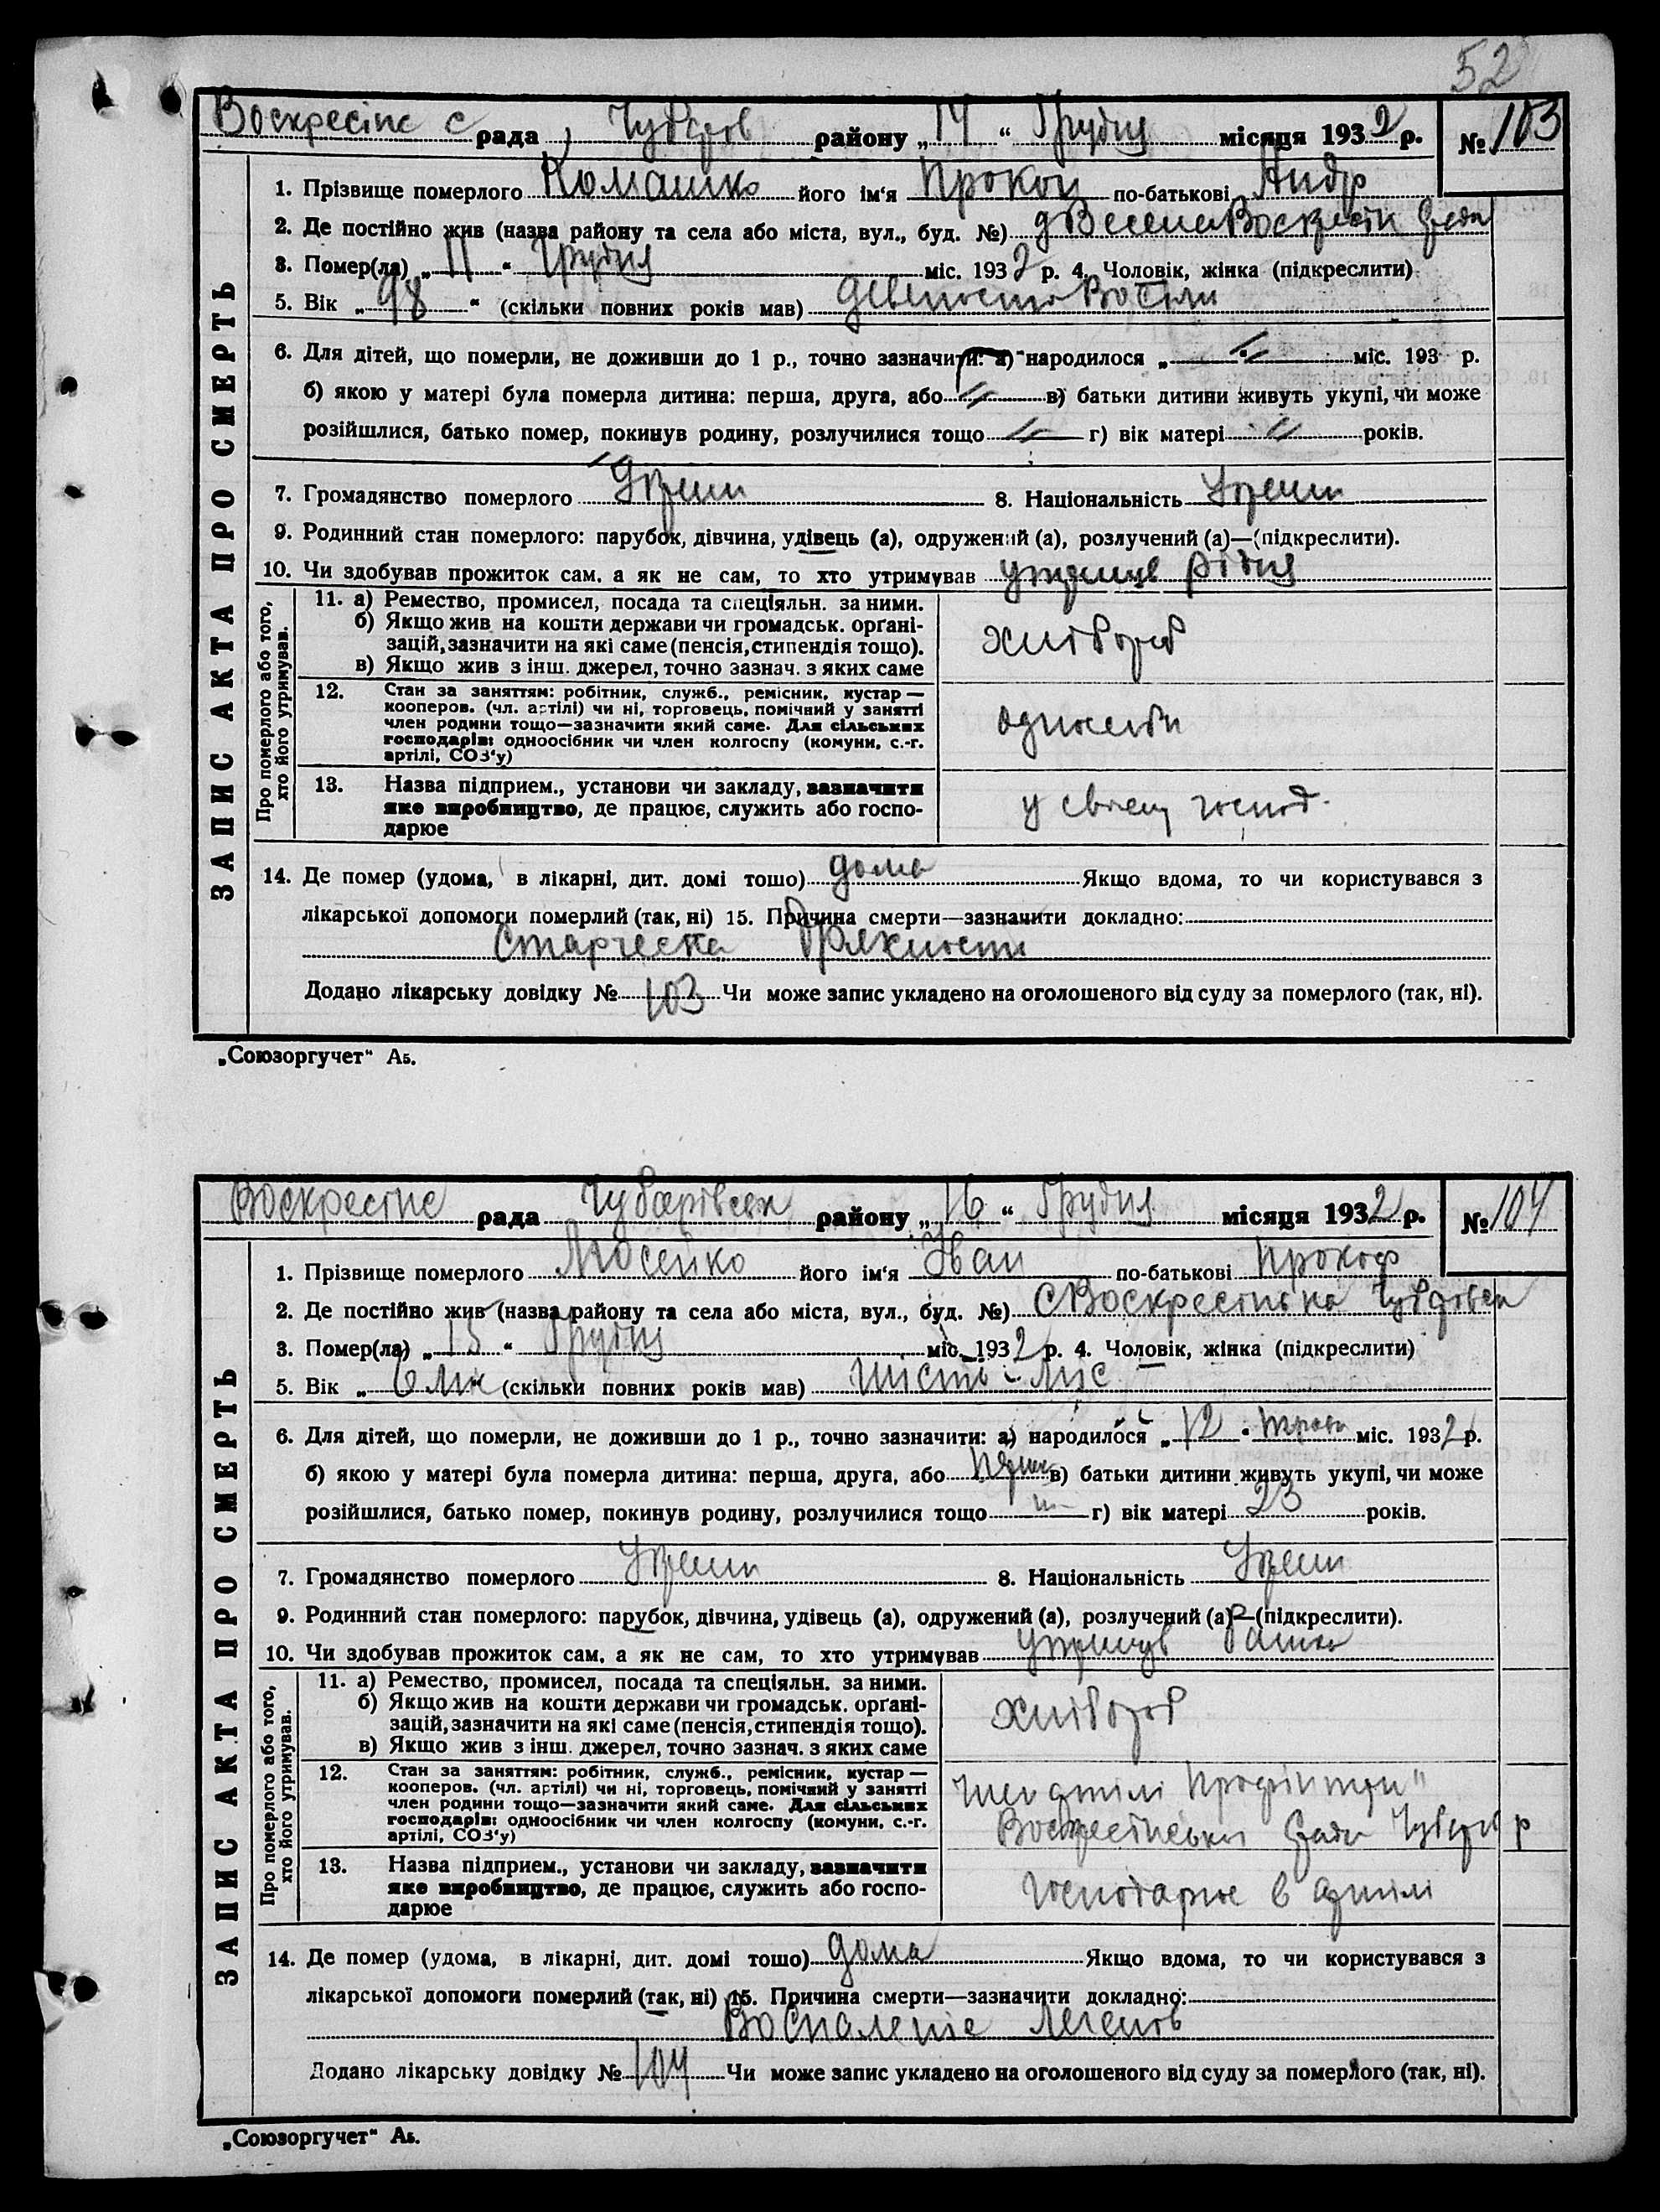 52
Воскресінс с рада, Чубарів району „14“ Грудня місяця 1932 р. № 103
ЗАПИС АКТА ПРО СМЕРТЬ
1. Прізвище померлого Комашко його ім‘я Прокоп по-батькові Андр
2. Де постійно жив (назва району та села або міста, вул., буд. №)
3. Помер(ла) „11“ Грудня міс. 1932 р. 4. Чоловік, жінка (підкреслити)
5. Вік „98“ (скільки повних років мав) девеносто Восіми
6. Для дітей, що померли, не доживши до 1 р., точно зазначити: а) народилося „ “ міс. 193 р.
б) якою у матері була померла дитина: перша, друга, або „ в) батьки дитини живуть укупі, чи може
розійшлися, батько помер, покинув родину, розлучилися тощо „ г) вік матері „ років.
7. Громадянство померлого Украин 8. Національність Украин
9. Родинний стан померлого: парубок, дівчина, удівець (а), одружений (а), розлучений (а)—(підкреслити).
10. Чи здобував прожиток сам, а як не сам, то хто утримував утримув рідня
Про померлого або того, хто його утримував.
11. а) Ремество, промисел, посада та спеціяльн. за ними.
б) Якщо жив на кошти держави чи громадськ. орґані-
зацій, зазначити на які саме (пенсія, стипендія тощо).
в) Якщо жив з інш. джерел, точно зазнач. з яких саме
хлібороб
12. Стан за заняттям: робітник, служб., ремісник, кустар —
кооперов. (чл. артілі) чи ні, торговець, помічний у занятті
член родини тощо—зазначити який саме. Для сільських
господарів: одноосібник чи член колгоспу (комуни, с.-г.
артілі, СОЗ‘у)
13. Назва підприєм., установи чи закладу, зазначити
яке виробництво, де працює, служить або госпо-
дарює
у своєму господ.
14. Де помер (удома, в лікарні, дит. домі тощо) дома Якщо вдома, то чи користувався з
лікарської допомоги померлий (так, ні) 15. Причина смерти—зазначити докладно:
Старческа Дряхность
Додано лікарську довідку № 103 Чи може запис укладено на оголошеного від суду за померлого (так, ні).
„Союзоргучет“ А5.
Воскресінс рада Чубарівськ району „16“ Грудня місяця 1932 р. № 104
ЗАПИС АКТА ПРО СМЕРТЬ
1. Прізвище померлого Мосейко його ім‘я Іван по-батькові Прокоф
2. Де постійно жив (назва району та села або міста, вул., буд. №) с Воскресінька Чубарівськ
3. Помер(ла) „15“ Грудня міс. 1932 р. 4. Чоловік, жінка (підкреслити)
5. Вік „6 міс“ (скільки повних років мав) шість міс
6. Для дітей, що померли, не доживши до 1 р., точно зазначити: а) народилося „12“ трав міс. 1932 р.
б) якою у матері була померла дитина: перша, друга, або перша в) батьки дитини живуть укупі, чи може
розійшлися, батько помер, покинув родину, розлучилися тощо г) вік матері 23 років.
7. Громадянство померлого Украин 8. Національність Украин
9. Родинний стан померлого: парубок, дівчина, удівець (а), одружений (а), розлучений (а)—(підкреслити).
10. Чи здобував прожиток сам, а як не сам, то хто утримував утримув батько
Про померлого або того, хто його утримував.
11. а) Ремество, промисел, посада та спеціяльн. за ними.
б) Якщо жив на кошти держави чи громадськ. орґані-
зацій, зазначити на які саме (пенсія, стипендія тощо).
в) Якщо жив з інш. джерел, точно зазнач. з яких саме
хлібороб
12. Стан за заняттям: робітник, служб., ремісник, кустар —
кооперов. (чл. артілі) чи ні, торговець, помічний у занятті
член родини тощо—зазначити який саме. Для сільських
господарів: одноосібник чи член колгоспу (комуни, с.-г.
артілі, СОЗ‘у)
член артілі Профінтерн"
Воскресінської Сради Чубарів р
13. Назва підприєм., установи чи закладу, зазначити
яке виробництво, де працює, служить або госпо-
дарює
господарює в артілі
14. Де помер (удома, в лікарні, дит. домі тощо) дома Якщо вдома, то чи користувався з
лікарської допомоги померлий (так, ні) 15. Причина смерти—зазначити докладно:
Воспаленіе легенів
Додано лікарську довідку № 104 Чи може запис укладено на оголошеного від суду за померлого (так, ні).
„Союзоргучет“ А5.